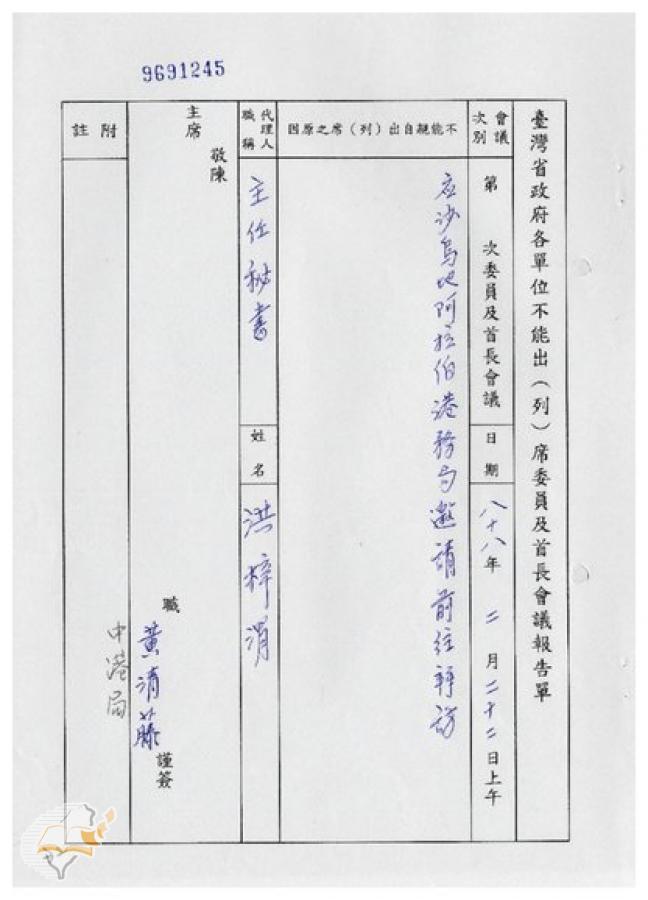 9691245
臺灣省政府各單位不能出(列)席委員及首長會議報告單
會議次別
第　次委員及首長會議
日期
八十八年二月二十二日上午
不能親自出(列)席之原因
应沙烏地阿拉伯港務局邀請前往拜訪
代理人職稱
主任秘書
姓名
洪梓渭
敬陳
主席
職 黃清藤 謹簽
附註
中港局